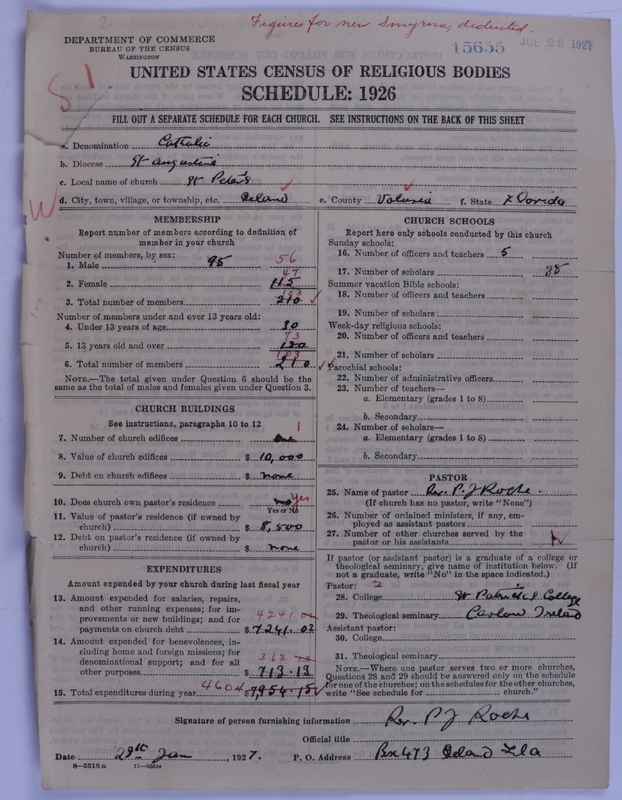 Figures for new Smyrna, deducted.
DEPARTMENT OF COMMERCE
BUREAU OF THE CENSUS
WASHINGTON
15655
JUL 29 1927
UNITED STATES CENSUS OF RELIGIOUS BODIES
SCHEDULE: 1926
FILL OUT A SEPARATE SCHEDULE FOR EACH CHURCH. SEE INSTRUCTIONS ON THE BACK OF THIS SHEET
a. Denomination Catholic
b. Diocese St Augustine
c. Local name of church St Peter's
d. City, town, village, or township, etc. Deland e. County Volusia f. State Florida
MEMBERSHIP
Report number of members according to definition of
member in your church
Number of members, by sex:
1. Male 95 56
2. Female 115 47
3. Total number of members 210 103
Number of members under and over 13 years old:
4. Under 13 years of age 30
5. 13 years old and over 180 73
6. Total number of members 210 103
NOTE.—The total given under Question 6 should be the
same as the total of males and females given under Question 3.
CHURCH BUILDINGS
See instructions, paragraphs 10 to 12
7. Number of church edifices one 1
8. Value of church edifices $ 10,000
9. Debt on church edifices $ none
10. Does church own pastor's residence no Yes
Yes or No
11. Value of pastor's residence (if owned by
church) $ 8,500
12. Debt on pastor's residence (if owned by
church) $ none
EXPENDITURES
Amount expended by your church during last fiscal year
13. Amount expended for salaries, repairs,
and other running expenses; for im-
provements or new buildings; and for
payments on church debt $ 7241.02 4241.02
14. Amount expended for benevolences, in-
cluding home and foreign missions; for
denominational support; and for all
other purposes $ 713.13 363
15. Total expenditures during year 4604 7954.15
CHURCH SCHOOLS
Report here only schools conducted by this church
Sunday schools:
16. Number of officers and teachers 5
17. Number of scholars 35
Summer vacation Bible schools:
18. Number of officers and teachers
19. Number of scholars
Week-day religious schools:
20. Number of officers and teachers
21. Number of scholars
Parochial schools:
22. Number of administrative officers
23. Number of teachers—
a. Elementary (grades 1 to 8)
b. Secondary
24. Number of scholars—
a. Elementary (grades 1 to 8)
b. Secondary
PASTOR
25. Name of pastor Rev. P. J Roche.
(If church has no pastor, write "None")
26. Number of ordained ministers, if any, em-
ployed as assistant pastors
27. Number of other churches served by the
pastor or his assistants
If pastor (or assistant pastor) is a graduate of a college or
theological seminary, give name of institution below. (If
not a graduate, write "No" in the space indicated.)
Pastor: 2
28. College St Patrick's College
29. Theological seminary Carlow Ireland
Assistant pastor:
30. College
31. Theological seminary
NOTE.—Where one pastor serves two or more churches,
Questions 28 and 29 should be answered only on the schedule
for one of the churches; on the schedules for the other churches,
write "See schedule for church."
Signature of person furnishing information Rev. P J Roche
Official title
Date 29st Jan, 1927. P. O. Address Box 473 Deland Fla
8—5518a 11—